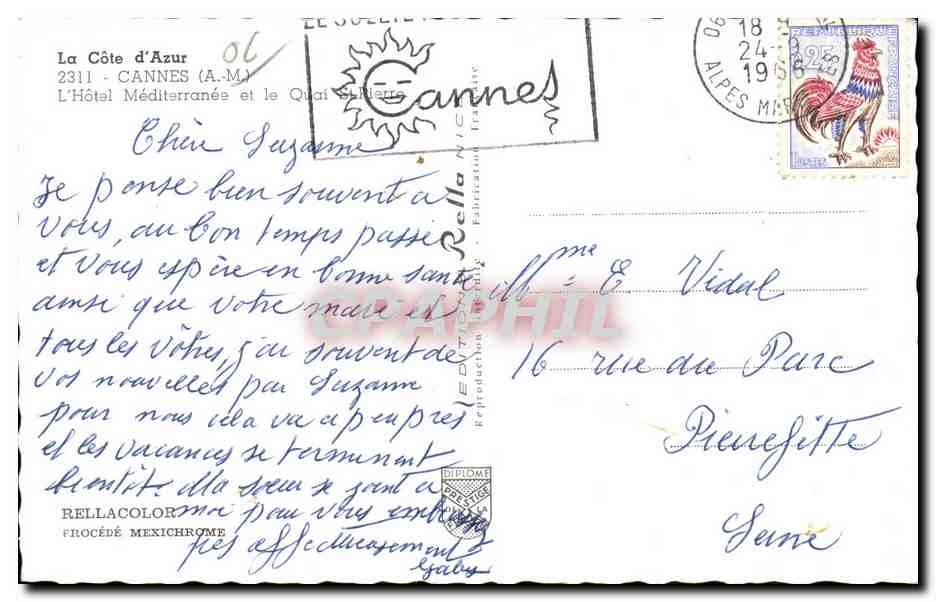 La Côte d'Azur
06
2311 - CANNES (A.-M.)
L'Hôtel Méditerranée et le Quai St-Pierre
LE SOLEIL
Cannes
18 H
24 - 9
1966
ALPES MAR
REPUBLIQUE FRANÇAISE
0,25
POSTES
Chère Suzanne
Je pense bien souvent a
vous, au bon temps passé
et vous espère en bonne santé
ainsi que votre mari et
tous les vôtres, j'ai souvent de
vos nouvelles par Suzanne
pour nous cela va a peu près
et les vacances se terminent
bientôt. Ma sœur se joint a
moi pour vous embrasser
très affectueusement
Gaby
EDITION Rella NICE
Reproduction interdite - Fabrication Française
Mme E Vidal
16 rue du Parc
Pierrefitte
Seine
DIPLOME
PRESTIGE
DE LA
RELLACOLOR
PROCÉDÉ MEXICHROME
CPAPHIL